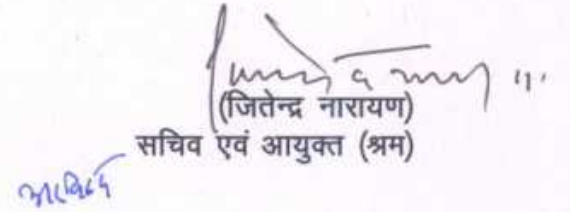 (जितेन्द्र नारायण)
सचिव एवं आयुक्त (श्रम)